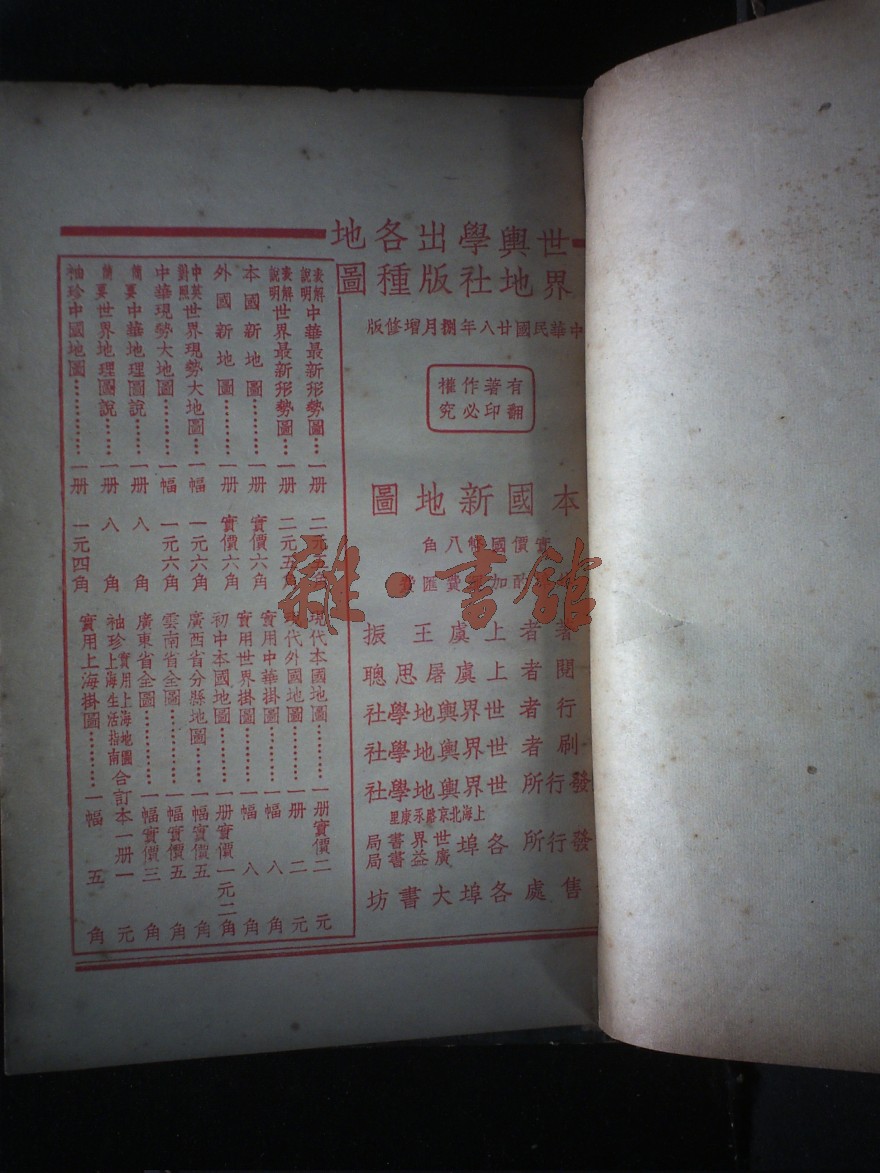 世界輿地學社出版各種地圖
中華民國廿八年捌月增修版
有著作權
翻印必究
本國新地圖
實價國幣八角
酌加 匯費
者 者 上虞 王 振
閱 者 上虞 屠思聰
行 者 世界輿地學社
刷 者 世界輿地學社
發行所 世界輿地學社
上海北京路承康里
發行所 各埠 世界書局
廣益書局
售處 各埠大書坊
表解說明 中華最新形勢圖………一册 二元
表解說明 世界最新形勢圖………一册 二元五角
本國新地圖…………一册 實價六角
外國新地圖…………一册 實價六角
中英對照 世界現勢大地圖……一幅 一元六角
中華現勢大地圖………一幅 一元六角
簡要中華地理圖說………一册 八角
簡要世界地理圖說………一册 八角
袖珍中國地圖…………一册 一元四角
現代本國地圖………一册實價二元
現代外國地圖………一册 二元
實用中華掛圖………一幅 八角
實用世界掛圖………一幅 八角
初中本國地圖………一册實價一元二角
廣西省分縣地圖……一幅實價五角
雲南省全圖…………一幅實價五角
廣東省全圖…………一幅實價三角
袖珍上海生活指南 實用上海地圖 合訂本一册一元
實用上海掛圖………一幅 五角
雜·書館